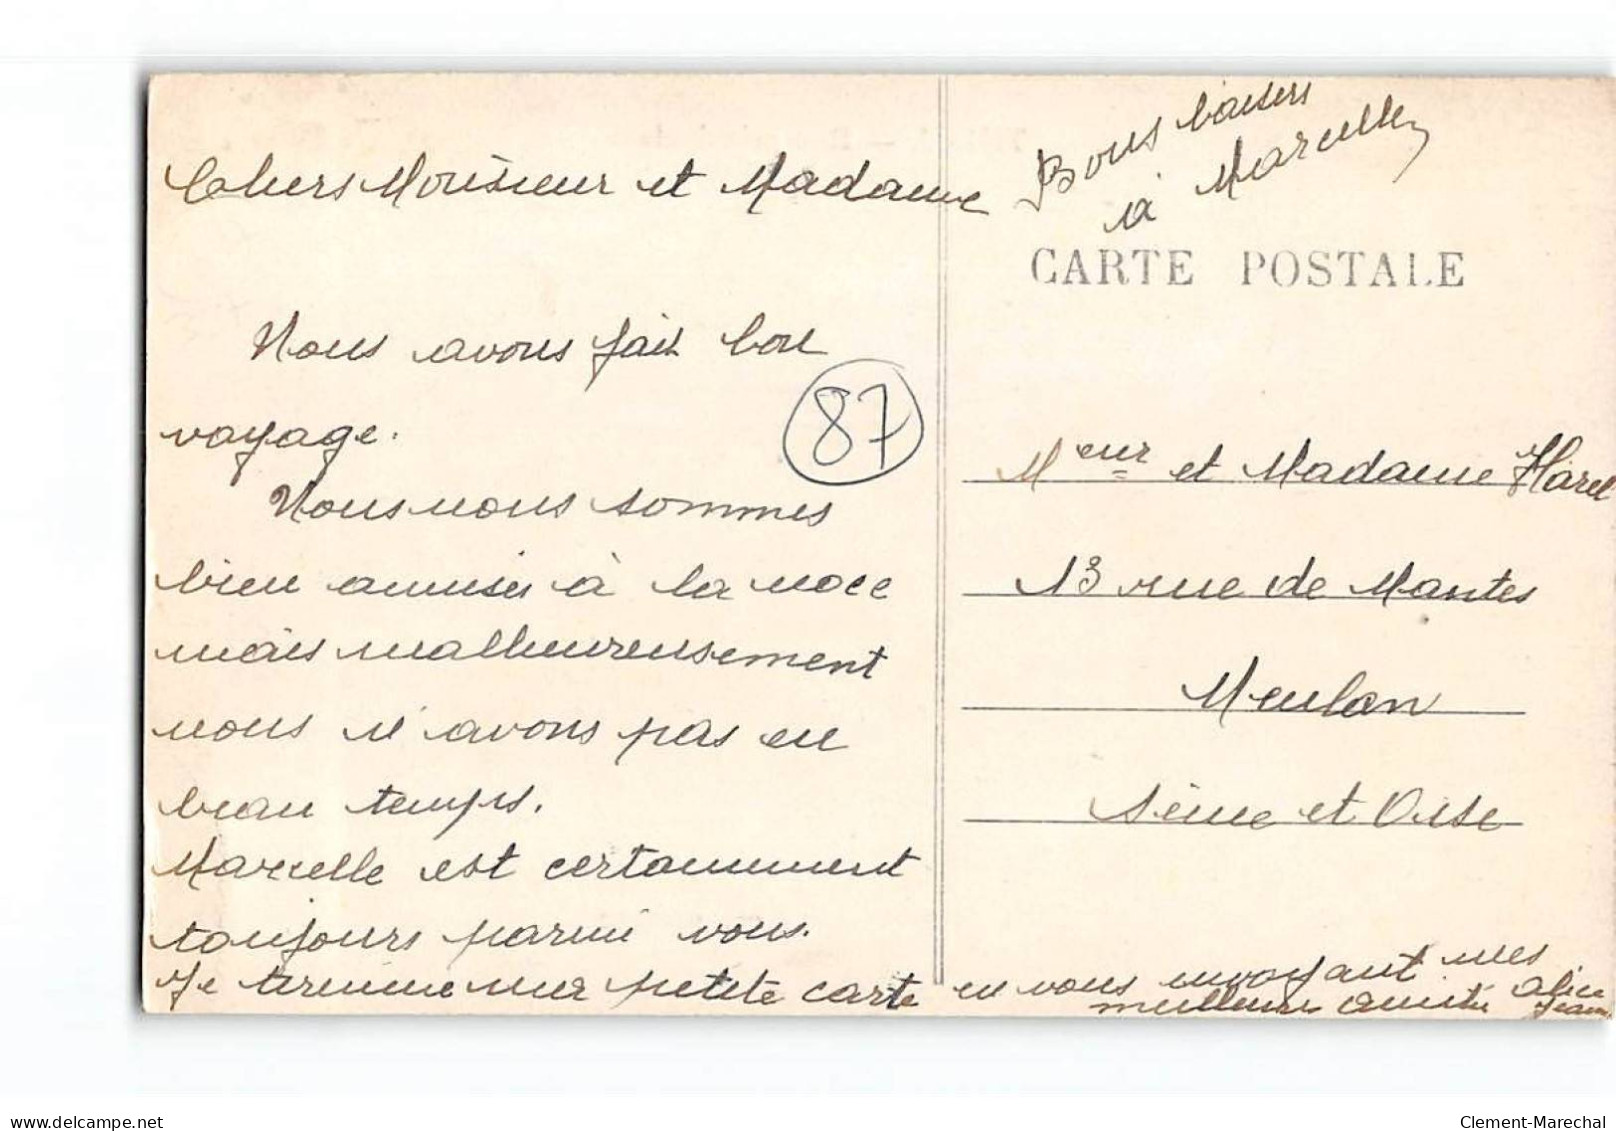 Chers Monsieur et Madame
Nous avons fait bon
voyage.
Nous nous sommes
bien amusés à la noce
mais malheureusement
nous n'avons pas eu
beau temps.
Marcelle est certainement
toujours parmi vous.
Je termine mer petite carte en vous envoyant mes
meilleures amitiés
Alice
Jean
87
Bons baisers
à Marcelle
CARTE POSTALE
Meur et Madame Harel
13 rue de Mantes
Meulan
Seine et Oise
delcampe.net
Clement-Marechal